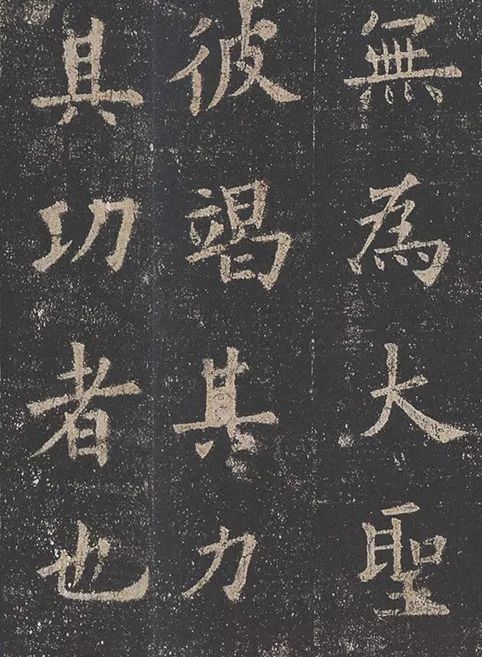 無為大聖
彼竭其力
其功者也